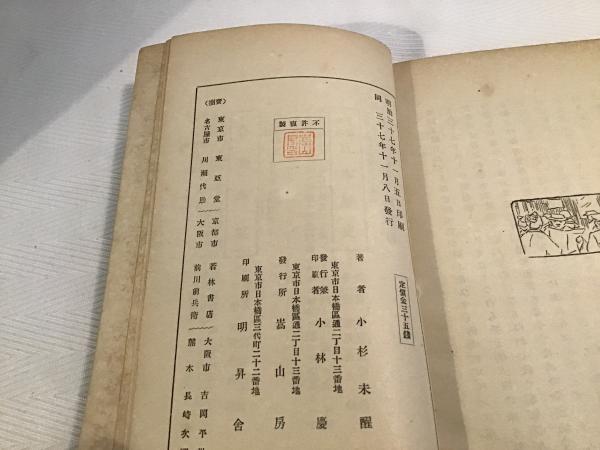 明治三十七年十一月五日印刷
同 三十七年十一月八日發行
定價金三十五錢
不許複製
著者 小杉未醒
東京市日本橋區通二丁目十三番地
發行兼印刷者 小林慶
東京市日本橋區通二丁目十三番地
發行所 嵩山房
東京市日本橋區三代町二十二番地
印刷所 明昇舍
東京市 東亞堂 京都市 若林書店 大阪市 吉岡平
名古屋市 川瀬代助 大阪市 前川 熊木 長崎次